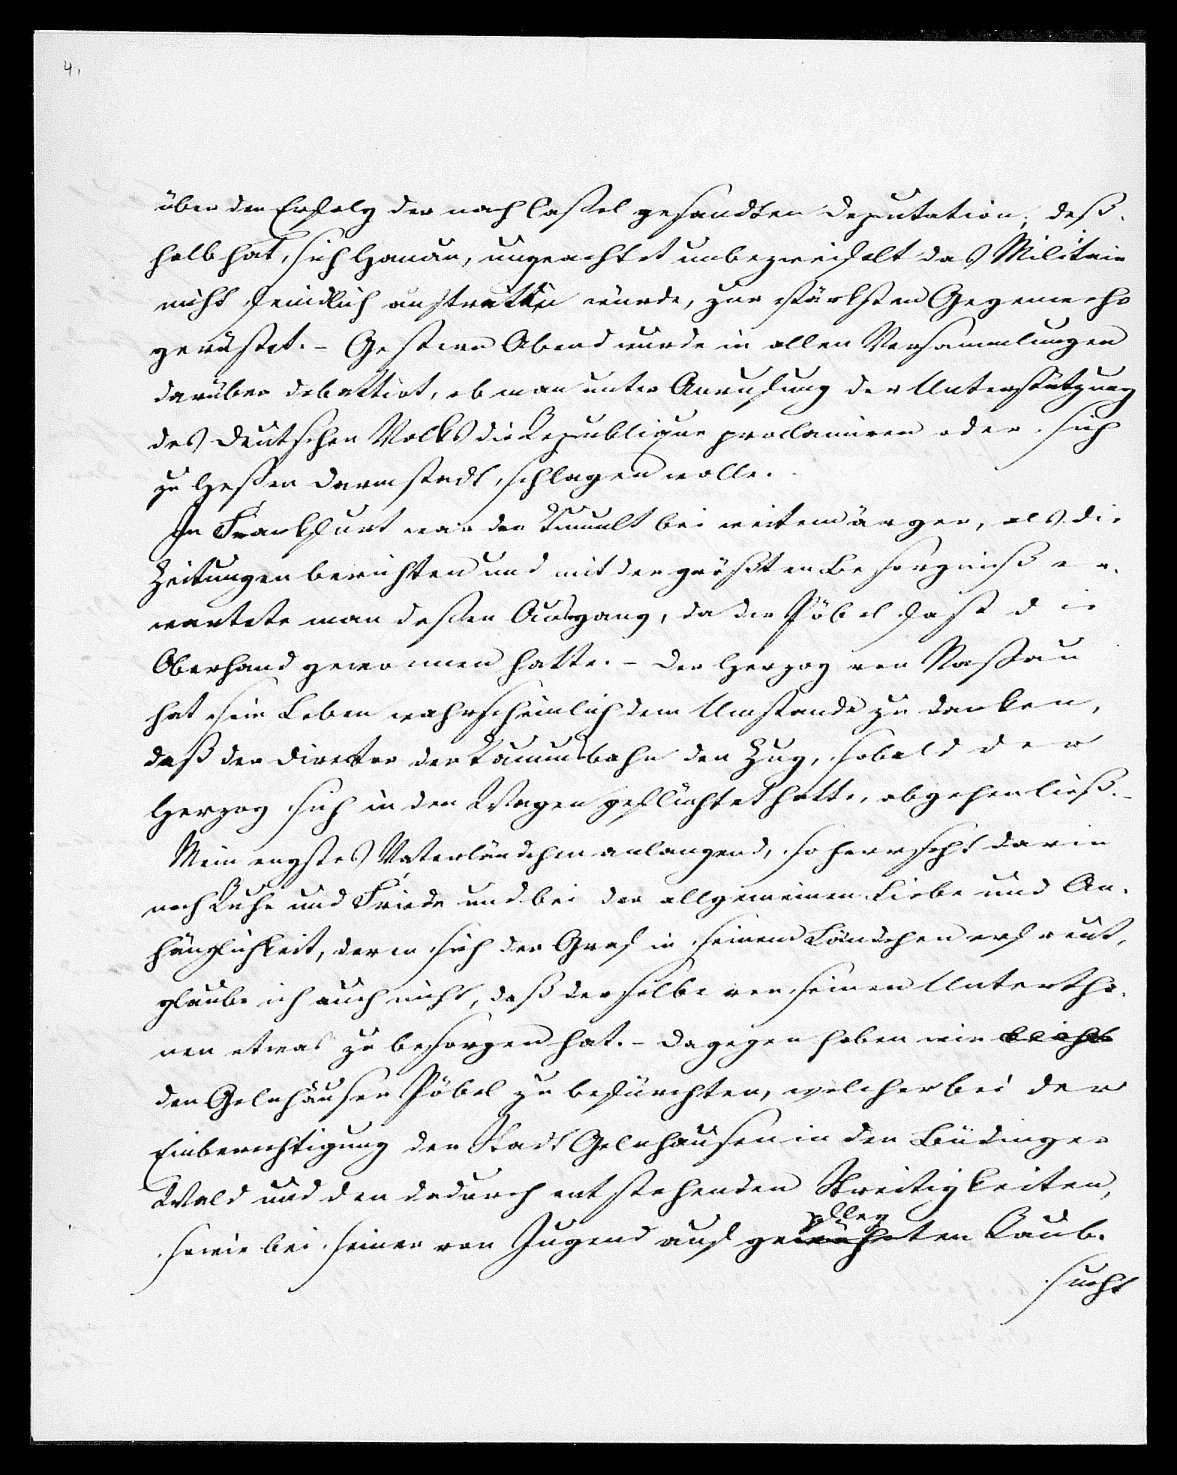 4.
über den Erfolg der nach Cassel gesandten Deputation; deß-
halb hat sich Hanau, ungeachtet unbezweifelt das Militair
nicht feindlich auftretten würde, zur stärksten Gegenwehr
gerüstet. – Gestern Abend wurde in allen Versammlungen
darüber debattirt, ob man unter Anrufung der Unterstützung
des deutschen Volks die Republique proclamiren oder sich
zu Hessen Darmstadt schlagen wolle.
In Frankfurt war der Tumult bei weitem ärger, als die
Zeitungen berichten und mit der größten Besorgniß er-
wartete man dessen Ausgang, da der Pöbel fast die
Oberhand gewonnen hatte. – Der Herzog von Nassau
hat sein Leben wahrscheinlich dem Umstande zu danken,
daß der Director der Taunusbahn den Zug, sobald der
Herzog sich in den Wagen geflüchtet hatte, abgehen ließ. –
Mein engstes Vaterländchen anlangend, so herrscht darin
noch Ruhe und Friede und bei der allgemeinen Liebe und An-
hänglichkeit, deren sich der Graf in seinem Ländchen erfreut,
glaube ich auch nicht, daß derselbe von seinen Untertha-
nen etwas zu besorgen hat. – Dagegen haben wir
den Gelnhäuser Pöbel zu befürchten, welcher bei der
Einberechtigung der Stadt Gelnhausen in den Büdinger
Wald und den dadurch entstehenden Streitigkeiten,
sowie bei seiner von Jugend auf gepflegten Raub-
sucht